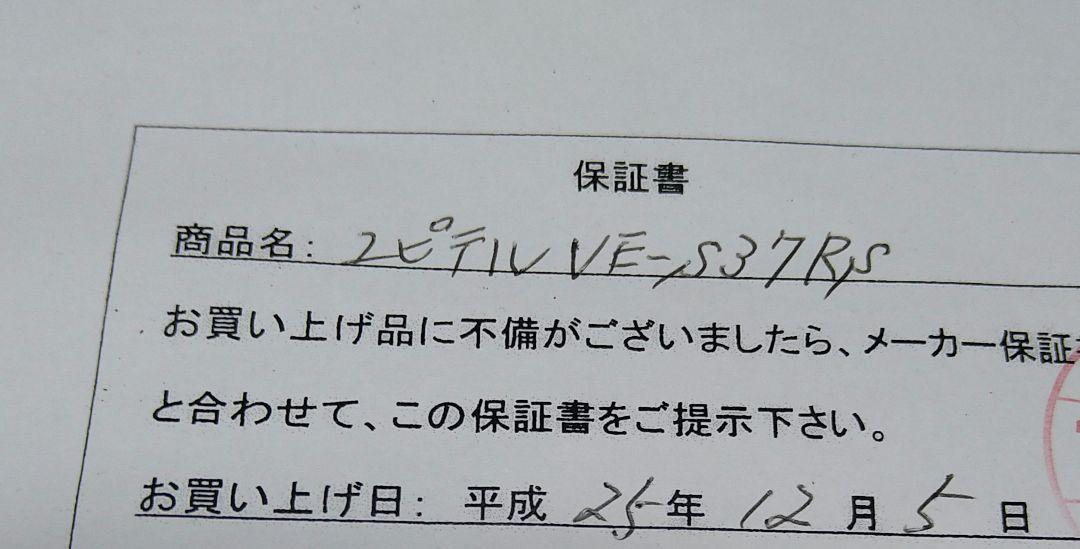 保証書
商品名: コピテル VE-S37RS
お買い上げ品に不備がございましたら、メーカー保証
と合わせて、この保証書をご提示下さい。
お買い上げ日: 平成 25年 12月 5日